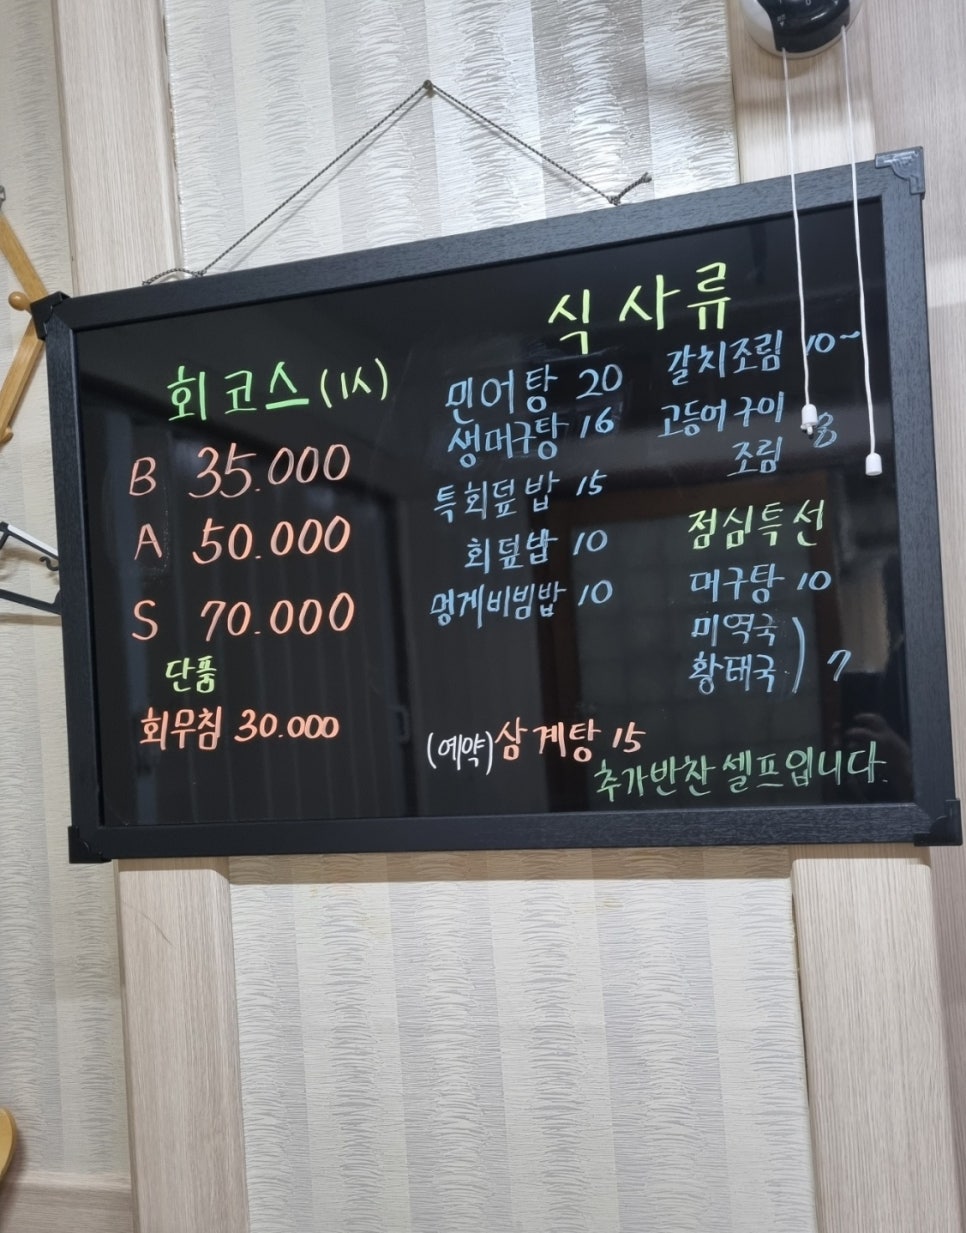 회코스(1人)
B 35.000
A 50.000
S 70.000
단품
회무침 30.000
식사류
민어탕 20
생대구탕 16
특회덮밥 15
회덮밥 10
멍게비빔밥 10
갈치조림 10~
고등어구이
조림 8
점심특선
대구탕 10
미역국
황태국 ) 7
(예약)삼계탕 15
추가반찬 셀프입니다.